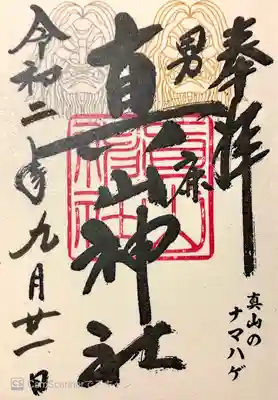 奉拝
男鹿
真山神社
令和二年九月廿一日
真山の
ナマハゲ
真山
神社
CS CamScanner